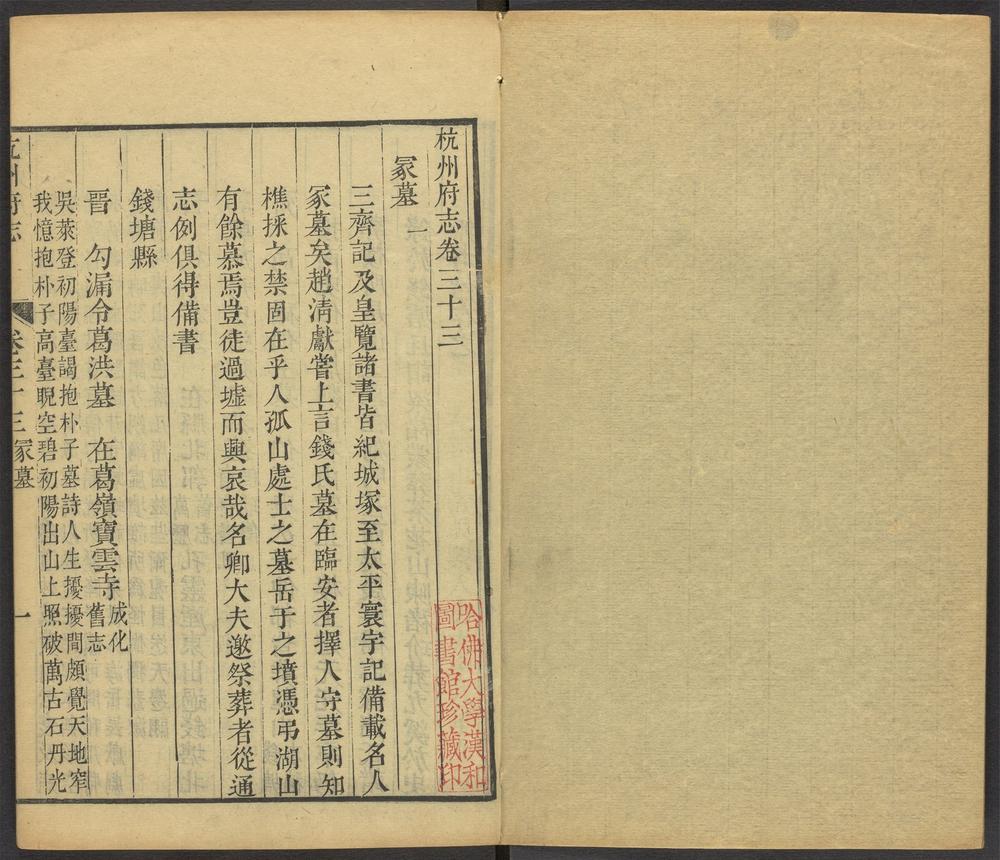 杭州府志卷三十三
冢墓一
三齊記及皇覽諸書皆紀城塚至太平寰宇記備載名人
冢墓矣趙清獻嘗上言錢氏墓在臨安者擇人守墓則知
樵採之禁固在乎人孤山處士之墓岳于之墳憑弔湖山
有餘慕焉豈徒過墟而興哀哉名卿大夫邀祭葬者從通
志例俱得備書
錢塘縣
晉　勾漏令葛洪墓　在葛嶺寶雲寺成化
舊志
吳萊登初陽臺謁抱朴子墓詩人生擾擾間頗覺天地窄
我憶抱朴子高臺睨空碧初陽出山上照破萬古石丹光
杭州府志　卷三十三冢墓　一
哈佛大學漢和
圖書館珍藏印